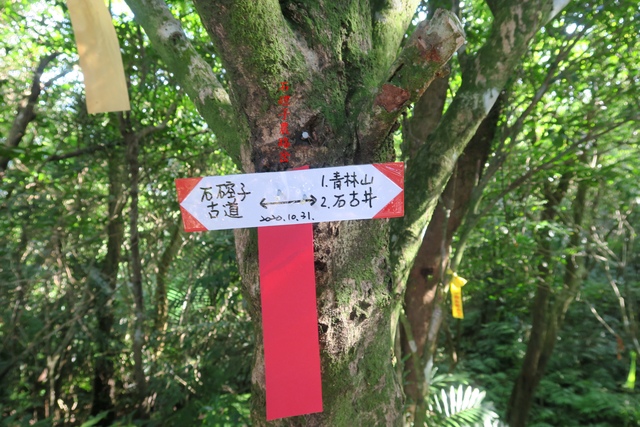 石硿子
古道
1.青林山
2.石古井
2020.10.31.